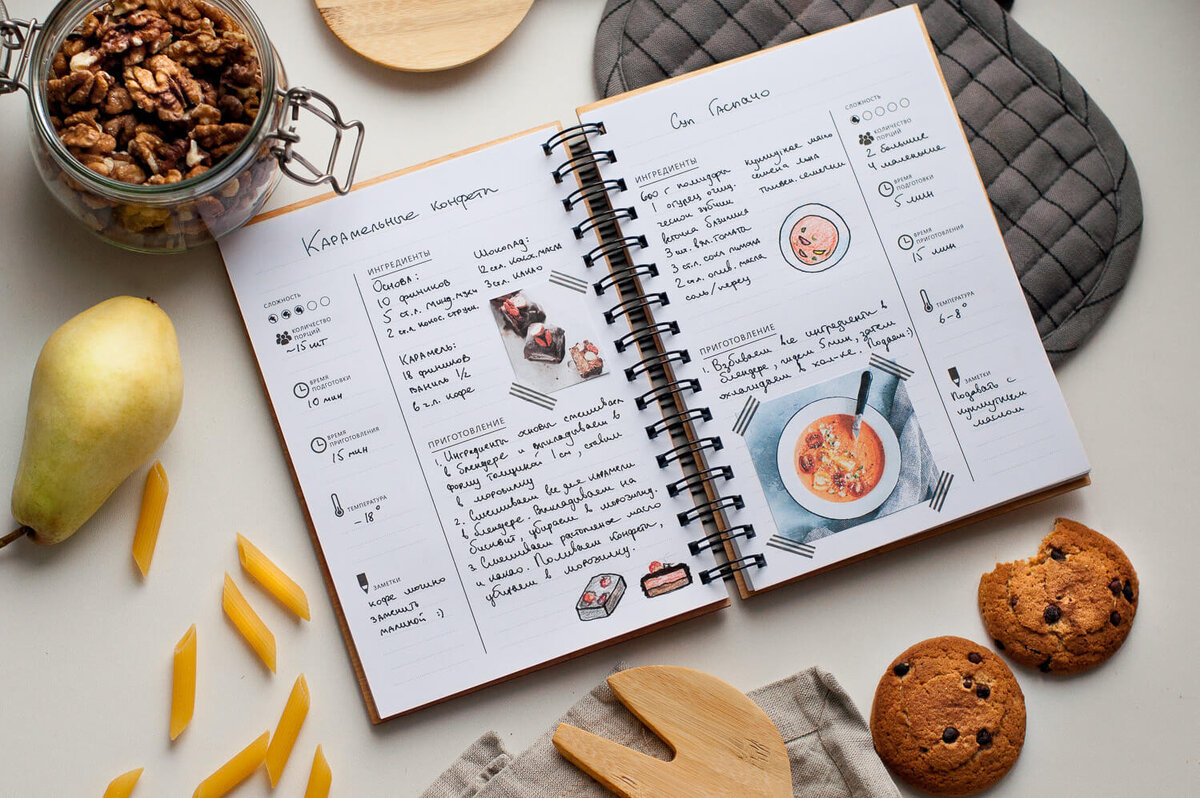 Карамельные конфеты
СЛОЖНОСТЬ
КОЛИЧЕСТВО
ПОРЦИЙ
~15 шт
ВРЕМЯ
ПОДГОТОВКИ
10 мин
ВРЕМЯ
ПРИГОТОВЛЕНИЯ
15 мин
ТЕМПЕРАТУРА
-18°
ЗАМЕТКИ
кофе можно
заменить
малиной :)
ИНГРЕДИЕНТЫ
Основа:
10 фиников
5 ст.л. минд. муки
2 ст.л. кокос. струж.
Карамель:
18 фиников
ваниль 1/2
6 г.л. кофе
Шоколад:
12 ст.л. масла
3 ст. какао
ПРИГОТОВЛЕНИЕ
1. Ингредиенты основы смешиваем
в блендере и выкладываем в
форму толщиной 1 см, ставим
в морозилку
2. Смешиваем все для карамели
в блендере. Выкладываем на
бисквит, убираем в морозилку.
3. Смешиваем растопленое масло
и какао. Поливаем конфеты,
убираем в морозилку.
Суп Гаспачо
ИНГРЕДИЕНТЫ
600 г помидоры
1 огурец очищ.
чеснок зубчик
веточка базилика
3 шт. вял. томаты
3 ст. сока лимона
2 ст.л. олив. масла
соль/перец
кунжутное масло
семена льна
тыквен. семечки
ПРИГОТОВЛЕНИЕ
1. Взбиваем все ингредиенты в
блендере, 5 мин, затем
охлаждаем в хол-ке. Подаем :)
СЛОЖНОСТЬ
КОЛИЧЕСТВО
ПОРЦИЙ
2 большие
4 маленькие
ВРЕМЯ
ПОДГОТОВКИ
5 мин
ВРЕМЯ
ПРИГОТОВЛЕНИЯ
15 мин
ТЕМПЕРАТУРА
6-8°
ЗАМЕТКИ
Подавать с
кунжутным
маслом